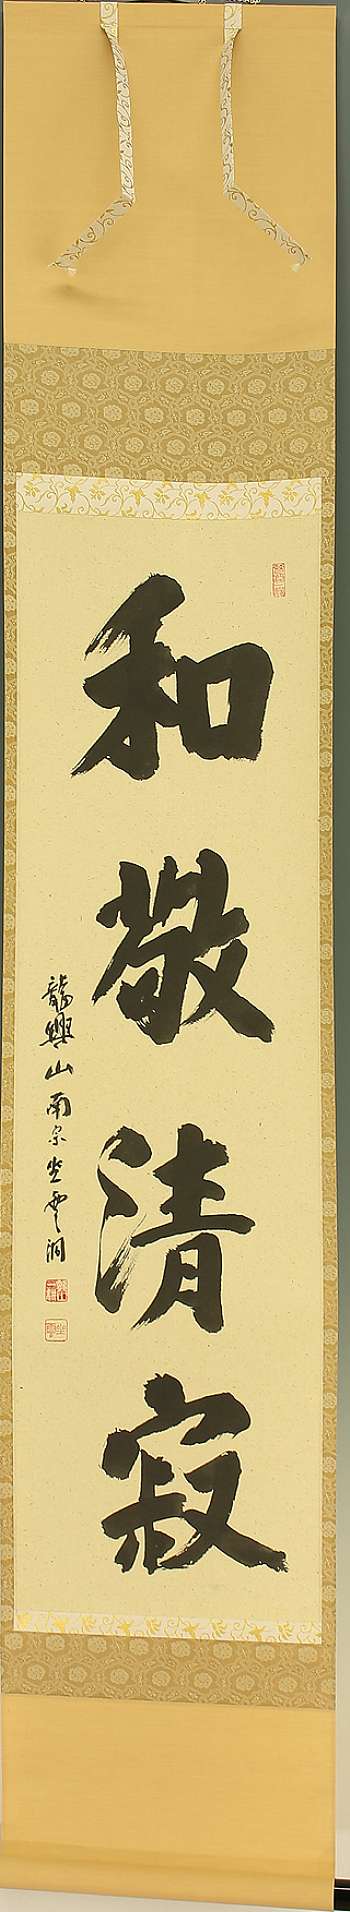 和敬清寂
龍興山南宗坐雲洞